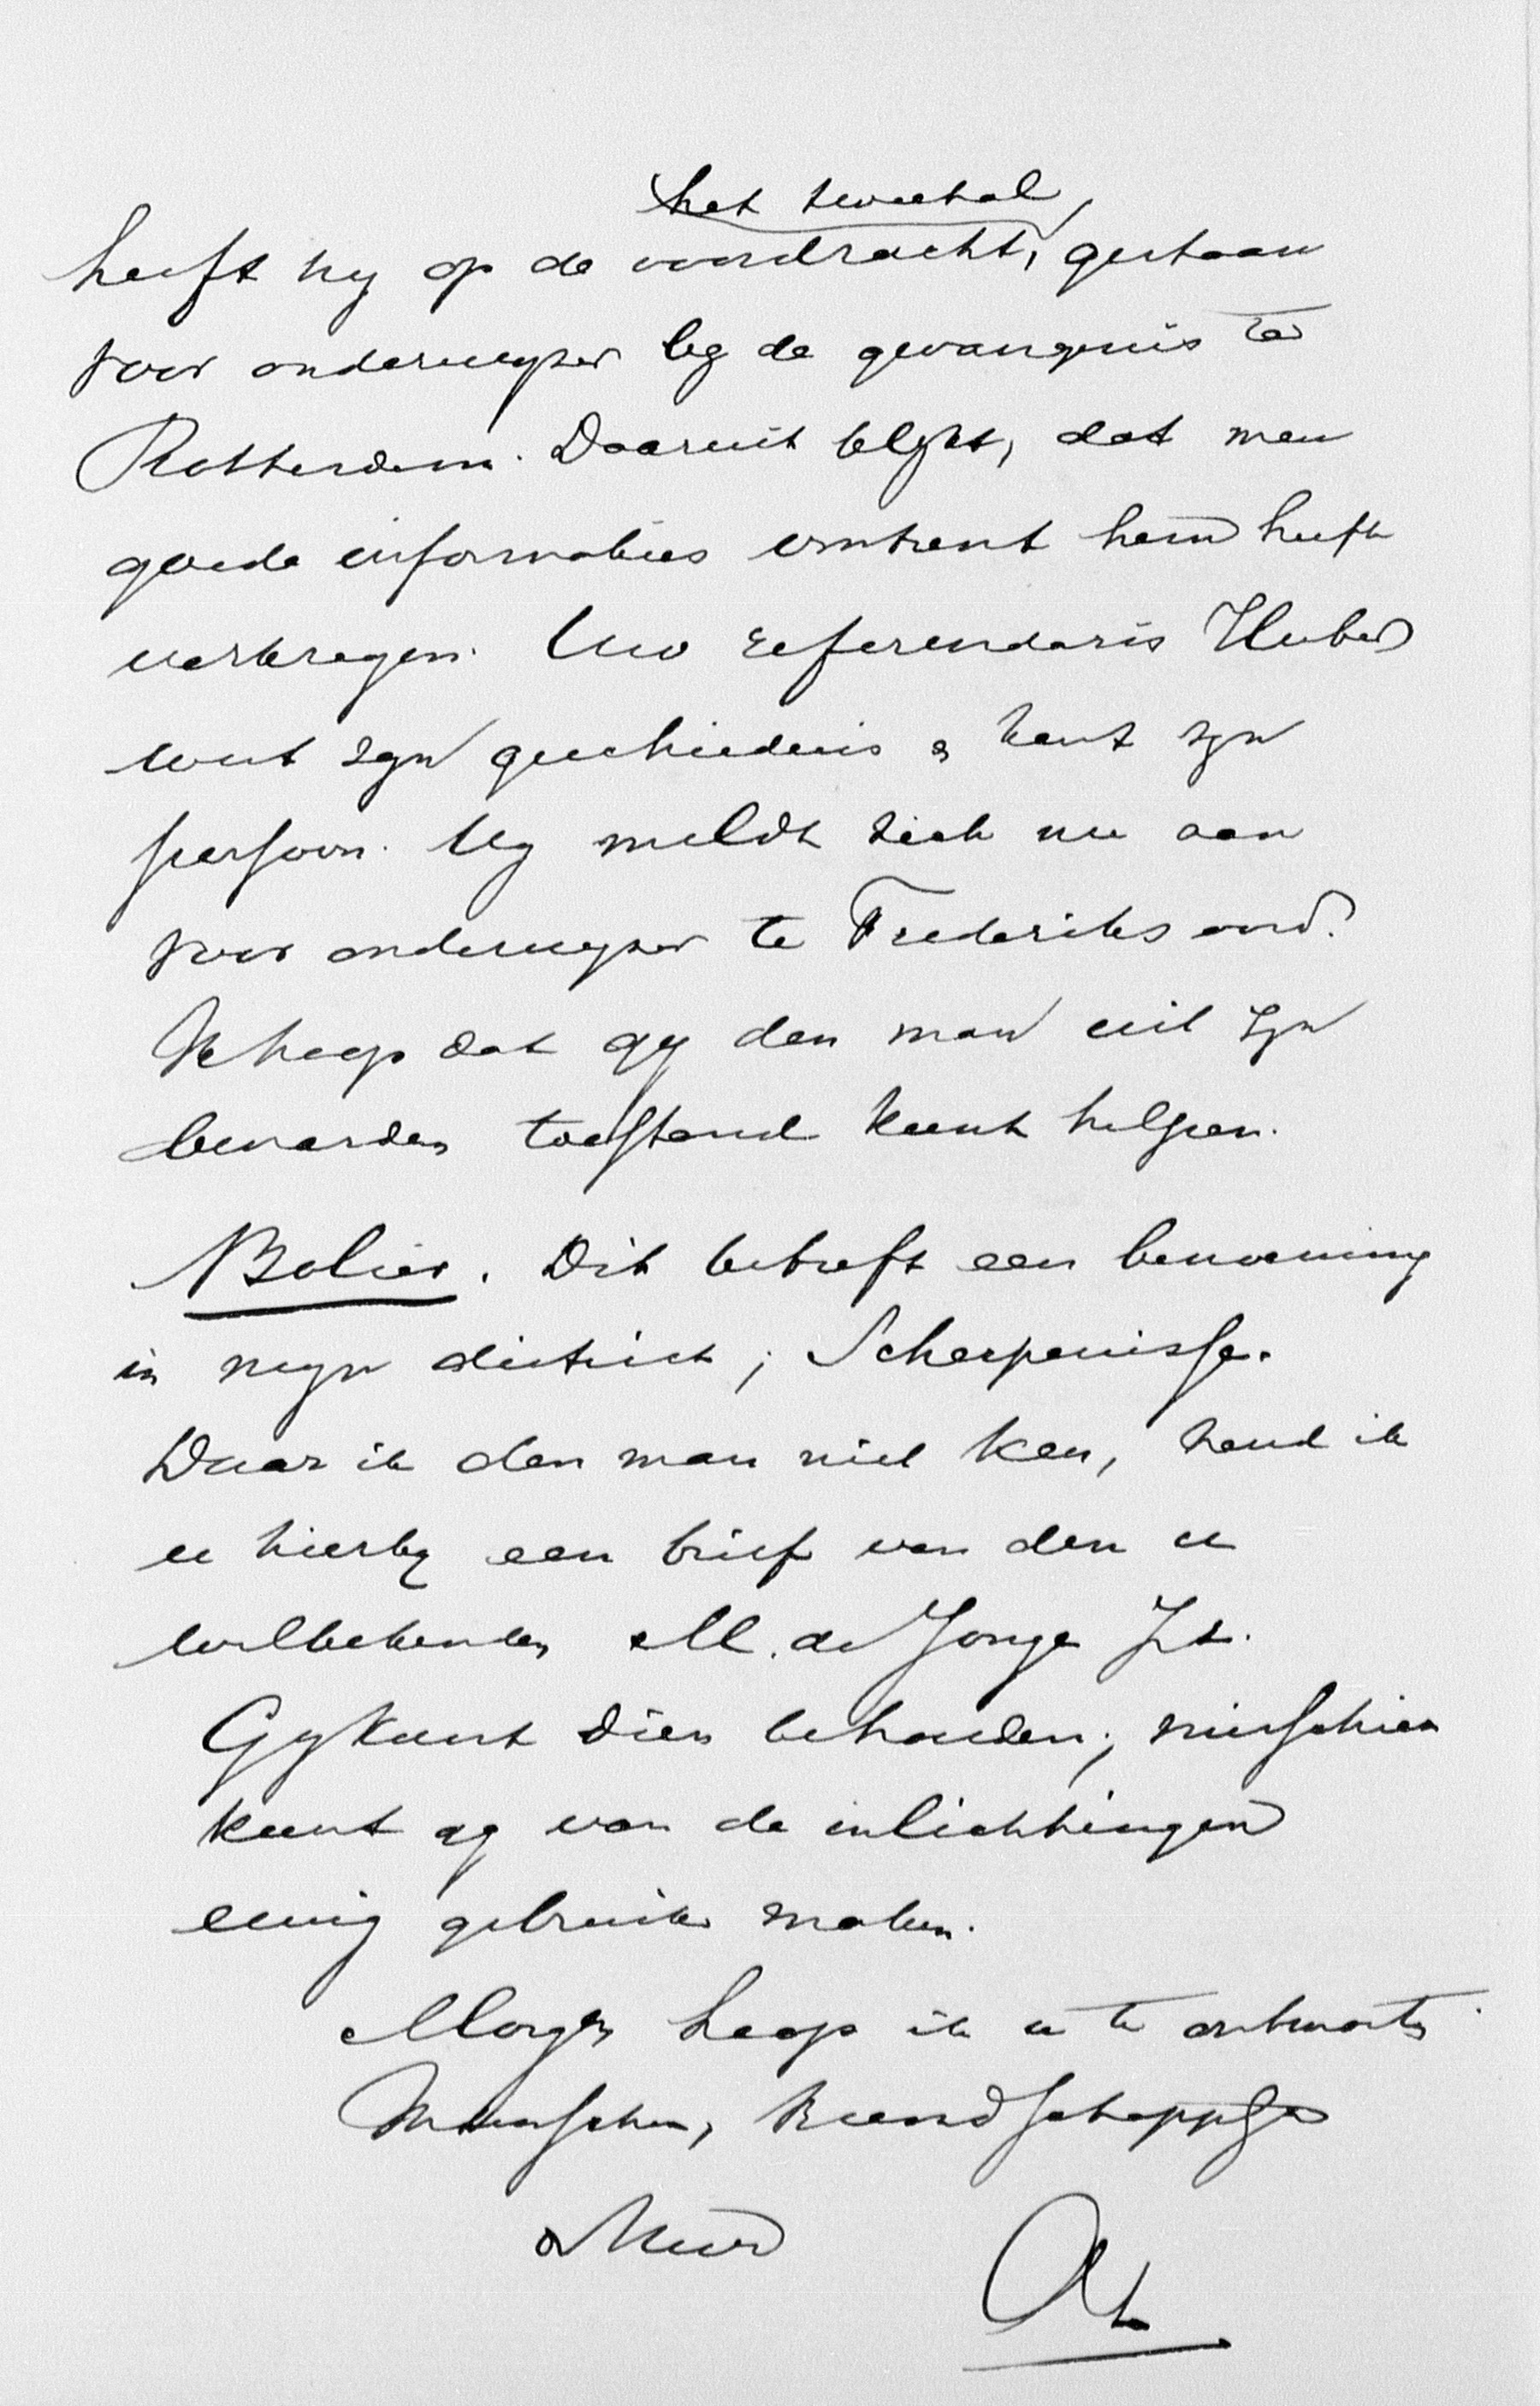 het tweetal,
heeft hy op de voordracht, gestaan
voor onderwyzer by de gevangenis te
Rotterdam. Daaruit blykt, dat men
goede informaties omtrent hem heeft
verkregen. Uw referendaris Huber
weet zyn geschiedenis & kent zyn
persoon. Hy meldt zich nu aan
voor onderwyzer te Frederiksoord.
Ik hoop dat gy den man uit zyn
benarden toestand kunt helpen.
Bolier. Dit betreft een benoeming
in myn district; Scherpenisse.
Daar ik den man niet ken, zend ik
u hierby een brief van den u
welbekenden M. de Jonge Jz.
Gy kunt dien behouden; misschien
kunt gy van de inlichtingen
eenig gebruik maken.
Morgen hoop ik u te antwoorden
Inmusschen, vriendschappelyk